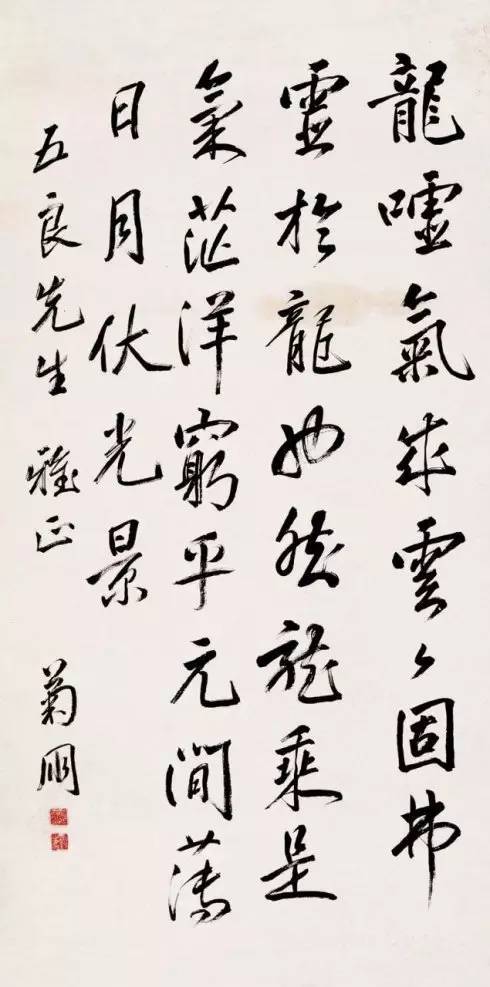 龍噓氣成雲々固弗
靈於龍也然龍乘是
氣茫洋窮乎元間薄
日月伏光景
五良先生 雅正 菊朋